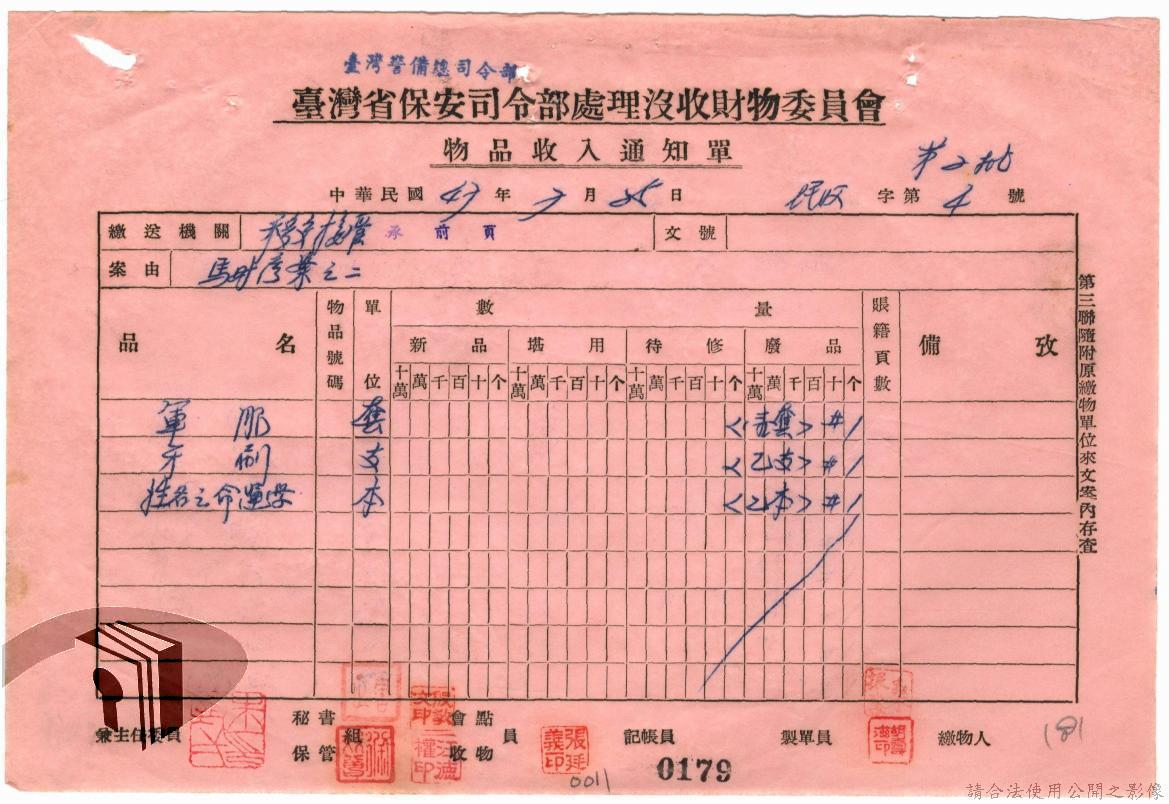 臺灣警備總司令部
臺灣省保安司令部處理沒收財物委員會
物品收入通知單
第二批
中華民國 47 年 7 月 25 日 字第 4 號
繳送機關 承前頁 文號
案由 馬時彥案之二
品名 物品號碼 單位 數量 賬籍頁數 備攷
新品 堪用 待修 廢品
十萬 萬 千 百 十 个 十萬 萬 千 百 十 个 十萬 萬 千 百 十 个 十萬 萬 千 百 十 个
軍服 套 <壹套> # 1
牙刷 支 <乙支> # 1
姓名之命運學 本 <乙本> # 1
第三聯隨附原繳物單位來文案內存查
兼主任委員 秘書 組 保管 會點 收物 員 記帳員 製單員 繳物人
張廷義印
181
0011
0179
請合法使用公開之影像